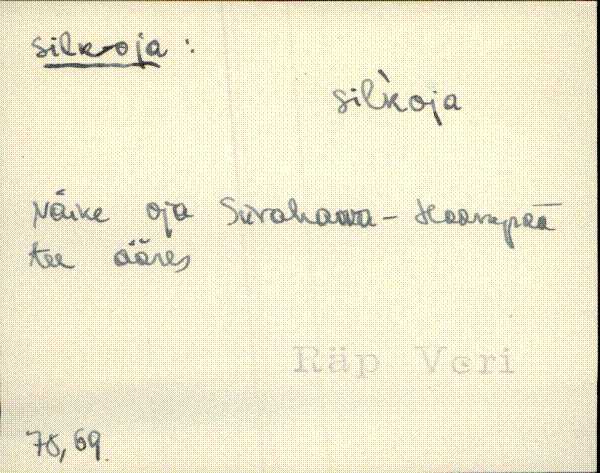 silk-oja :
sil'k̀oja
Väike oja Süvahavva - Haavapää
tee ääres
Räp Veri
78,69.